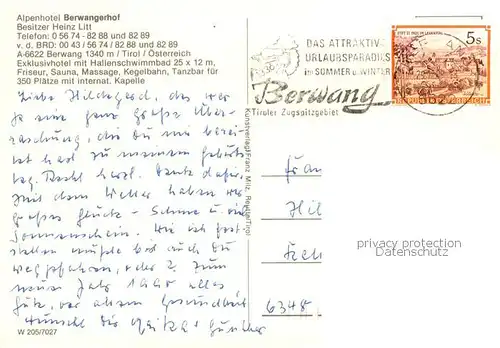 Alpenhotel Berwangerhof
Besitzer Heinz Litt
Telefon: 0 56 74 - 82 88 und 82 89
v. d. BRD: 00 43 / 56 74 / 82 88 und 82 89
A-6622 Berwang 1340 m / Tirol / Österreich
Exklusivhotel mit Hallenschwimmbad 25 x 12 m,
Friseur, Sauna, Massage, Kegelbahn, Tanzbar für
350 Plätze mit internat. Kapelle
Liebe Hildegard, das war
ja eine ganz große Über-
raschung, die Du mir berei-
test hast zu meinem Geburts-
tag. Recht herzl. Danke dafür.
Mit dem Wetter haben wir
großes Glück - Schnee u. viel
Sonnenschein. Wie ich fest-
stellen mußte bist auch Du
weggefahren, oder? Zum
neuen Jahr 1990 alles
Gute, vor allem Gesundheit
wünscht Dir Günther
W 205/7027
Kunstverlag Franz Milz, Reutte/Tirol
DAS ATTRAKTIVE
URLAUBSPARADIES
im SOMMER u. WINTER
Berwang
Tiroler Zugspitzgebiet
5s
REPUBLIK ÖSTERREICH
Frau
Hil
6348
privacy protection
Datenschutz